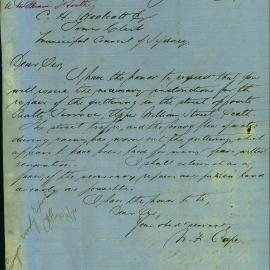 C. H. Woolcott Esq
Town Clerk
Municipal Council of Sydney
Dear Sir,
I have the honor to request that you
will issue the necessary instructions for the
repair of the guttering in the street opposite
Terrace, Upper William Street, South.
The street traffic, and the heavy flow of water
during rain, has worn out the guttering, which
appears to have been laid for many years without
renovation.
I shall esteem it as a
favor, if the necessary repairs are taken in hand
as early as possible.
I have the honor to be,
Dear Sir,
Your obed servant
W. F. Cape